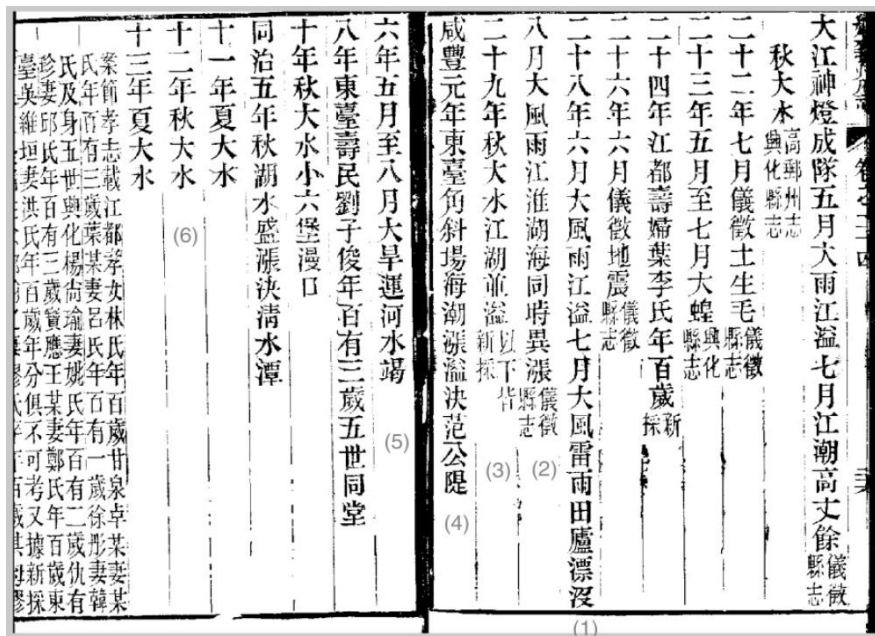 大江神燈成隊五月大雨江溢七月江潮高丈餘儀徵縣志
秋大水高郵州志興化縣志
二十二年七月儀徵土生毛儀徵縣志
二十三年五月至七月大蝗興化縣志
二十四年江都壽婦葉李氏年百歲新採
二十六年六月儀徵地震儀徵縣志
二十八年六月大風雨江溢七月大風雷雨田廬漂沒
(1)
八月大風雨江淮湖海同時異漲儀徵縣志
(2)
二十九年秋大水江湖並溢以下皆新採
(3)
咸豐元年東臺角斜場海潮漲溢決范公隄
(4)
六年五月至八月大旱運河水竭
(5)
八年東臺壽民劉子俊年百有三歲五世同堂
十年秋大水小六堡漫口
同治五年秋湖水盛漲決清水潭
十一年夏大水
十二年秋大水
(6)
十三年夏大水
案節孝志載江都孝女林氏年百歲甘泉卓某妻某
氏年百有三歲葉某妻呂氏年百有一歲徐彤妻韓
氏及身五世興化楊尚瑜妻姚氏年百有二歲仇有
珍妻邱氏年百有三歲寶應王某妻鄭氏年百歲東
臺吳維垣妻洪氏年百歲年分俱不可考又據新採